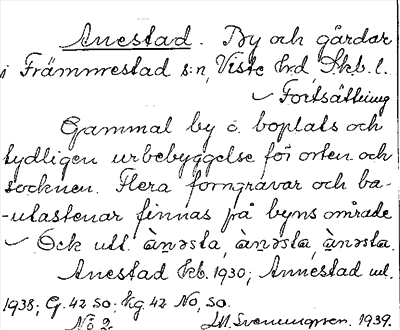 Anestad. By och gårdar
i Främmestad s:n, Viste hrd, Skb. l.
✓ Fortsättning
Gammal by o. boplats och
tydligen urbebyggelse för orten och
socknen. Flera forngravar och ba-
-utastenar finnas på byns område
✓ Ock utt. ànəsta, ànəsta, ànəsta.
Anestad kb. 1930; Annestad
1938; G. 42 SO; hg. 42 NO, SO.
No 2. Svenungsson. 1939.